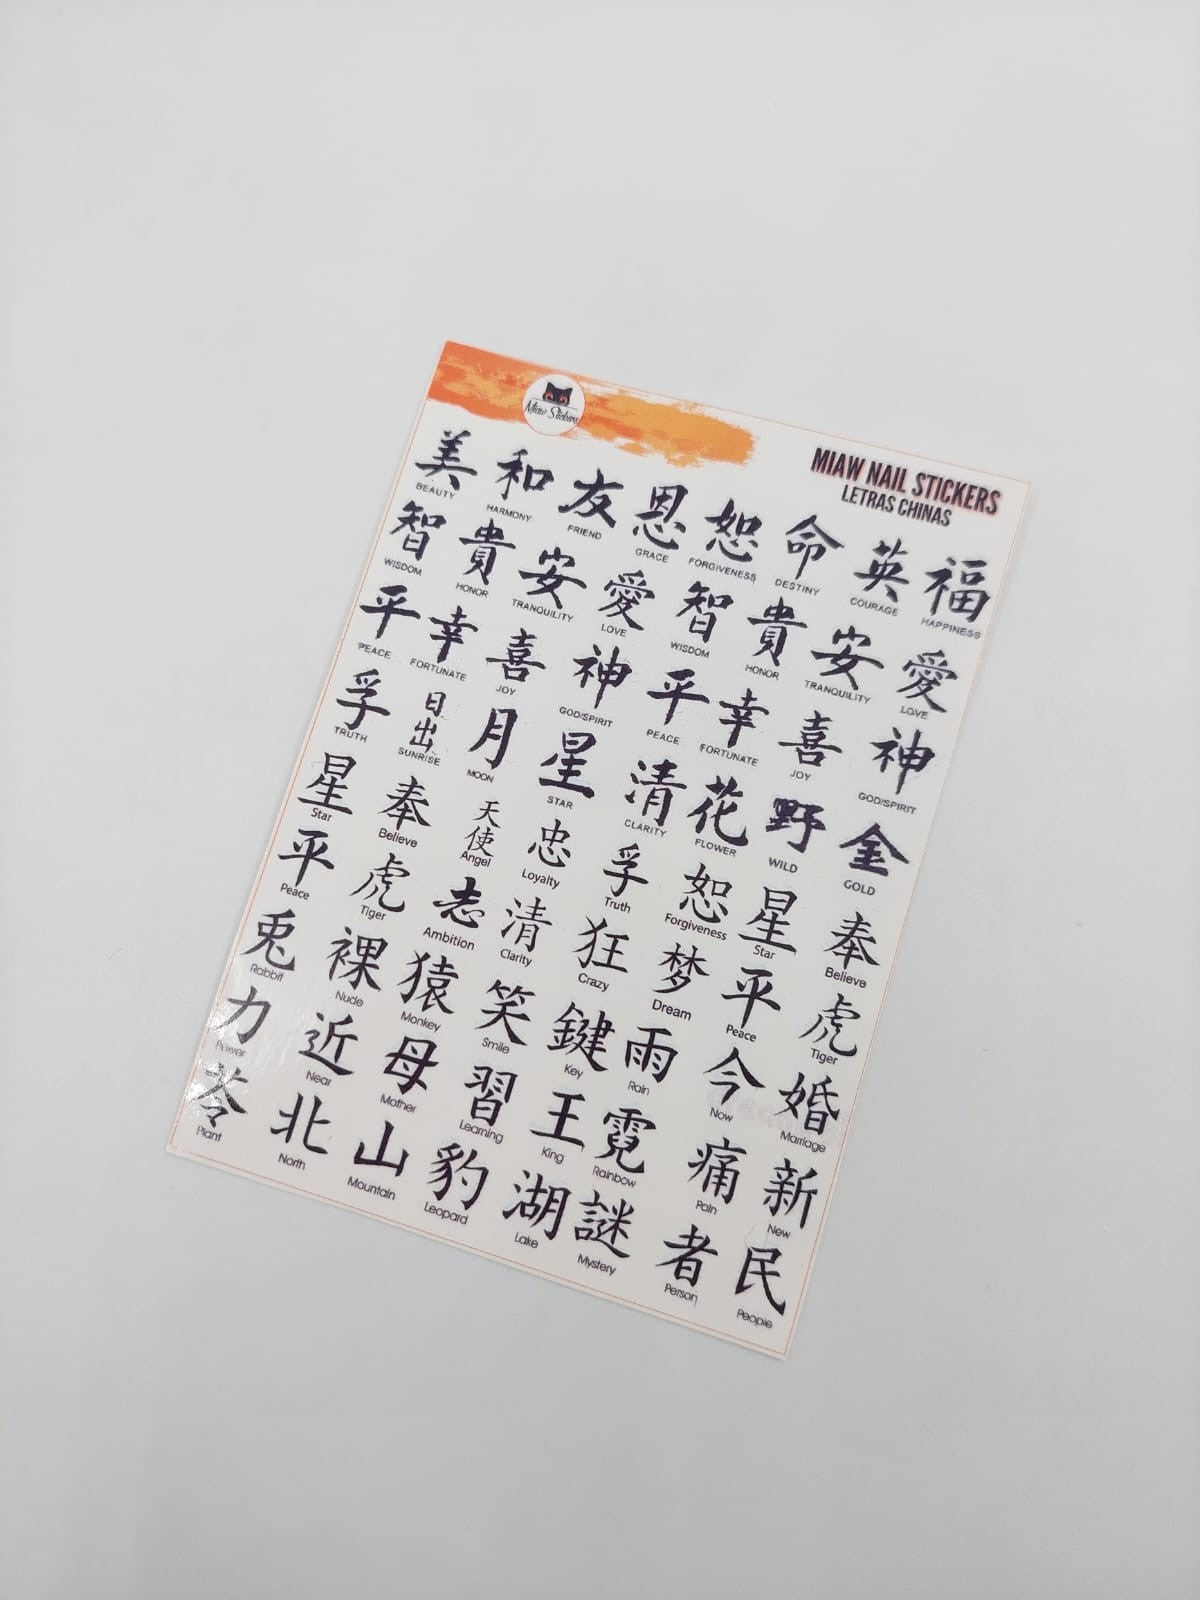 Miaw Stickers
MIAW NAIL STICKERS
LETRAS CHINAS
美 和 友 恩 恕 命 英 福
BEAUTY HARMONY FRIEND GRACE FORGIVENESS DESTINY COURAGE HAPPINESS
智 貴 安 愛 智 貴 安 愛
WISDOM HONOR TRANQUILITY LOVE WISDOM HONOR TRANQUILITY LOVE
平 幸 喜 神 平 幸 喜 神
PEACE FORTUNATE JOY GOD/SPIRIT PEACE FORTUNATE JOY GOD/SPIRIT
孚 日出 月 星 清 花 野 金
TRUTH SUNRISE MOON STAR CLARITY FLOWER WILD GOLD
星 奉 天使 忠 孚 恕 星 奉
Star Believe Angel Loyalty Truth Forgiveness Star Believe
平 虎 志 清 狂 梦 平 虎
Peace Tiger Ambition Clarity Crazy Dream Peace Tiger
兎 裸 猿 笑 鍵 雨 今 婚
Rabbit Nude Monkey Smile Key Rain Now Marriage
力 近 母 習 王 霓 痛 新
Power Near Mother Learning King Rainbow Pain New
苓 北 山 豹 湖 謎 者 民
Plant North Mountain Leopard Lake Mystery Person People